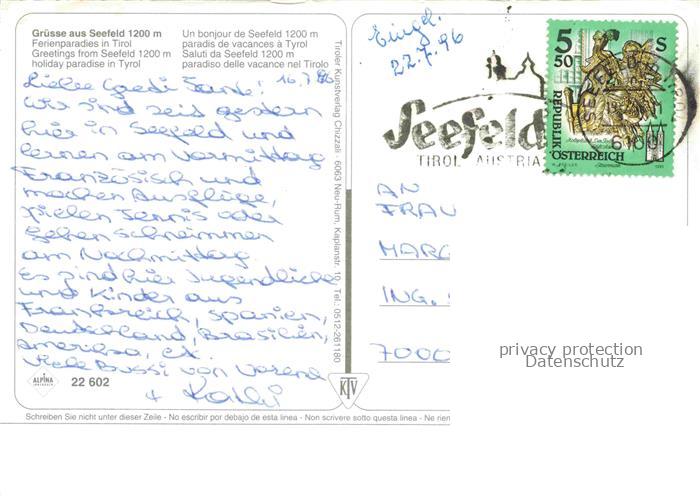 Grüsse aus Seefeld 1200 m
Ferienparadies in Tirol
Greetings from Seefeld 1200 m
holiday paradise in Tyrol
Un bonjour de Seefeld 1200 m
paradis de vacances à Tyrol
Saluti da Seefeld 1200 m
paradiso delle vacanze nel Tirolo
16.7.96
Wir sind seit gestern
hier in Seefeld und
lernen am Vormittag
Französisch und
machen Ausflüge,
spielen Tennis oder
gehen schwimmen
am Nachmittag.
Es sind hier Jugendliche
und Kinder aus
Frankreich, Spanien,
Deutschland, Brasilien,
Amerika,
Viele Bussi von
+ Kathi
ALPINA
22 602
Tiroler Kunstverlag Chizzali · 6063 Neu-Rum, Kaplanstr. 10, Tel. 0512-261180
KTV
Schreiben Sie nicht unter dieser Zeile - No escribir por debajo de esta linea - Non scrivere sotto questa linea - Ne rien
Eingel.
22.7.96
Seefeld
TIROL AUSTRIA
5 50 S
REPUBLIK
ÖSTERREICH
6100
AN
FRAU
MARG
ING.
7000
privacy protection
Datenschutz